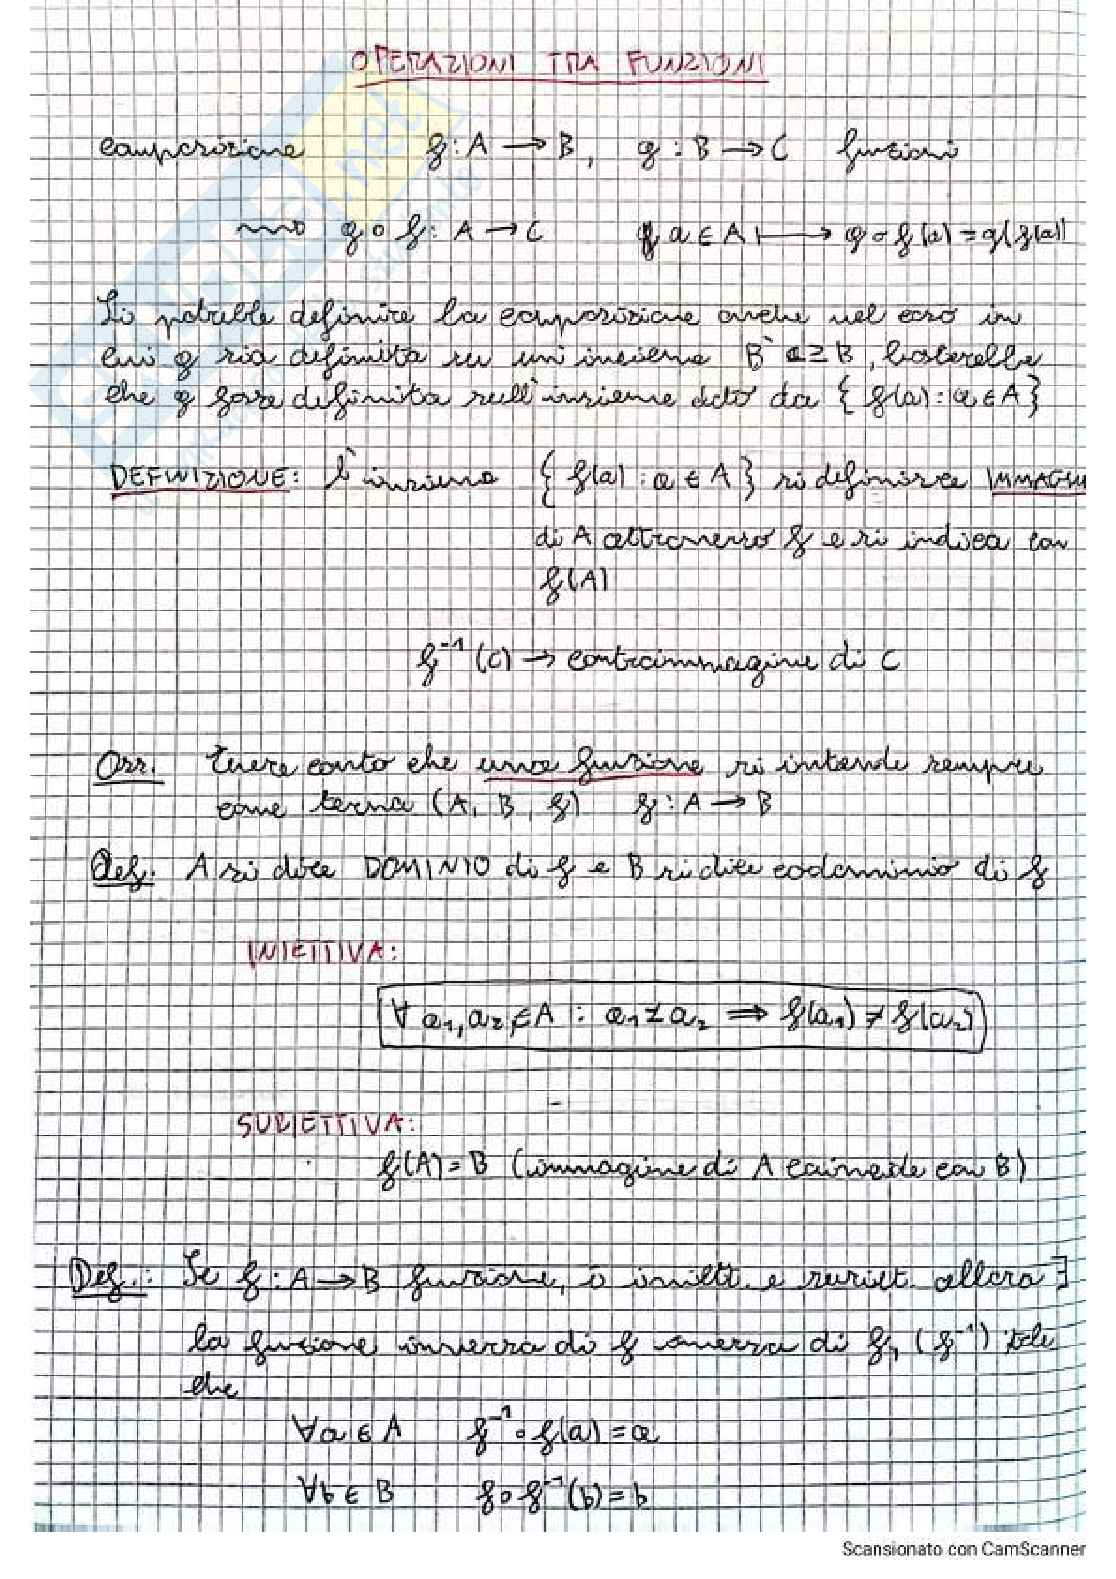 OPERAZIONI TRA FUNZIONI
composizione f : A → B, g : B → C funzioni
g ∘ f : A → C a ∈ A ↦ g ∘ f(a) = g(f(a))
Si potrebbe definire la composizione anche nel caso in
cui g sia definita su un insieme B' ⊇ B, basterebbe
che g fosse definita sull'insieme dato da { f(a) : a ∈ A }
DEFINIZIONE: L'insieme { f(a) : a ∈ A } si definisce IMMAGIN
di A attraverso f e si indica con
f(A)
f⁻¹(C) → controimmagine di C
Oss. tenere conto che una funzione si intende sempre
come terna (A, B, f) f : A → B
Def. A si dice DOMINIO di f e B si dice codominio di f
INIETTIVA:
∀ a₁, a₂ ∈ A : a₁ ≠ a₂ ⟹ f(a₁) ≠ f(a₂)
SURIETTIVA:
f(A) = B (immagine di A coincide con B)
Def.: Se f : A → B funzione, è iniett. e suriet. allora ∃
la funzione inversa di f di f, (f⁻¹) tale
che
∀a ∈ A f⁻¹ ∘ f(a) = a
∀b ∈ B f ∘ f⁻¹(b) = b
Scansionato con CamScanner